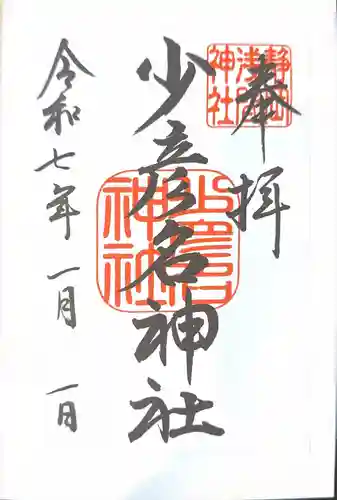 奉拝
少彦名神社
令和七年一月一日
静岡浅間神社
少彦名神社